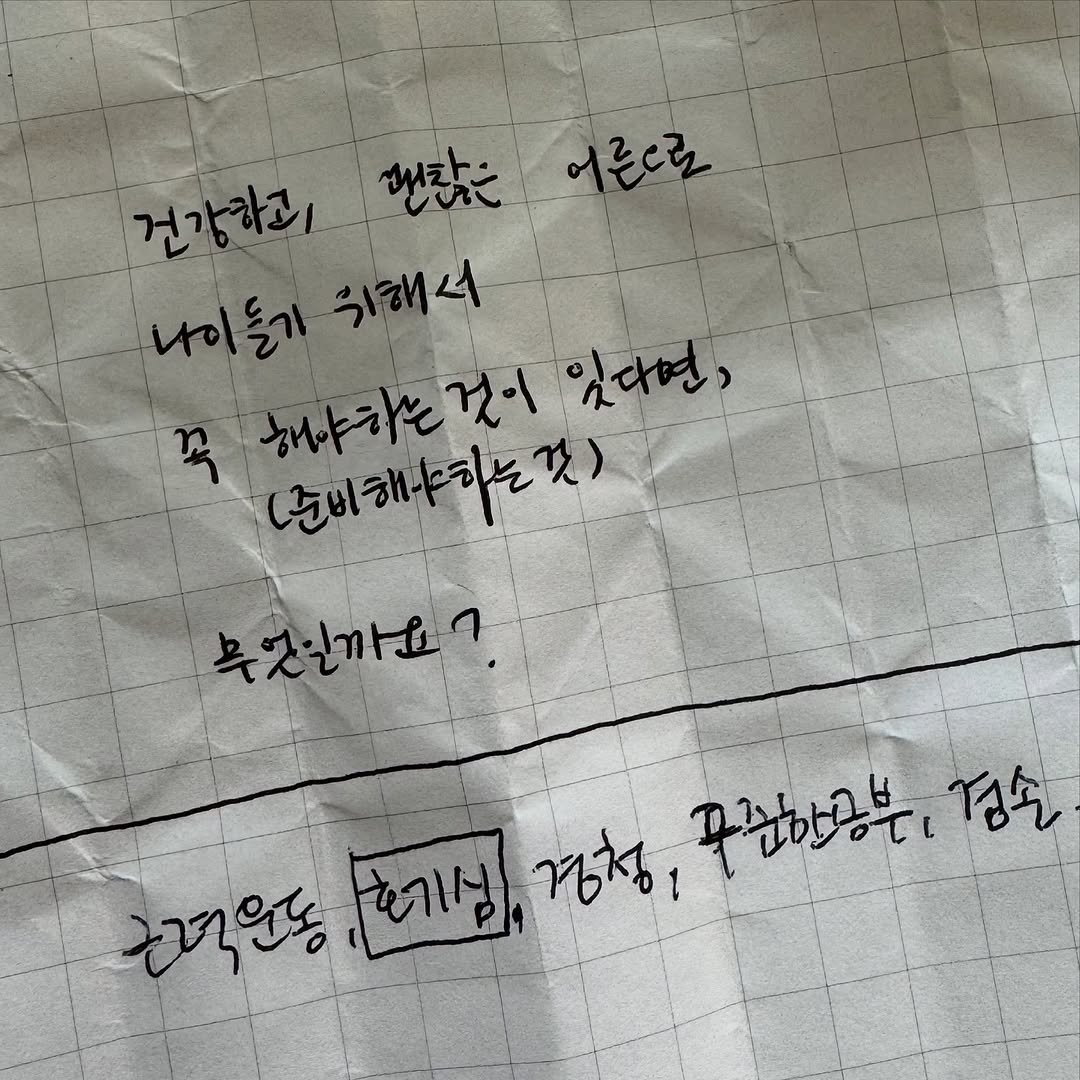 건강하고, 괜찮은 어른으로
나이들기 위해서
꼭 해야하는것이 있다면,
(준비해야하는것)
무엇일까요?
근력운동, 호기심, 경청, 꾸준한공부, 겸손